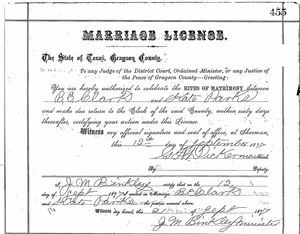 455
MARRIAGE LICENSE.
The State of Texas, Grayson County.
To any Judge of the District Court, Ordained Minister, or any Justice
of the Peace of Grayson County—Greeting:
You are hereby authorized to celebrate the RITES OF MATRIMONY between
B C Clark and Kate Parks
and make due return to the Clerk of the said County, within sixty days
thereafter, certifying your action under this License.
Witness my official signature and seal of office, at Sherman,
this 12th day of September 187
Clerk
By Deputy.
I, J M Binkley certify that on the 12
day of Sept 187 B C Clark
and Kate Parks the parties above named.
Witness my hand, this day of Sept 187
J. M. Binkley Minister